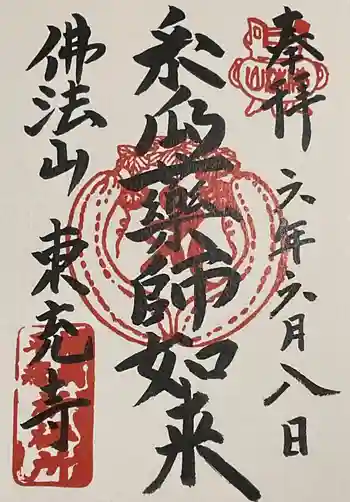 奉拝 六年六月八日
藥師如来
佛法山 東充寺